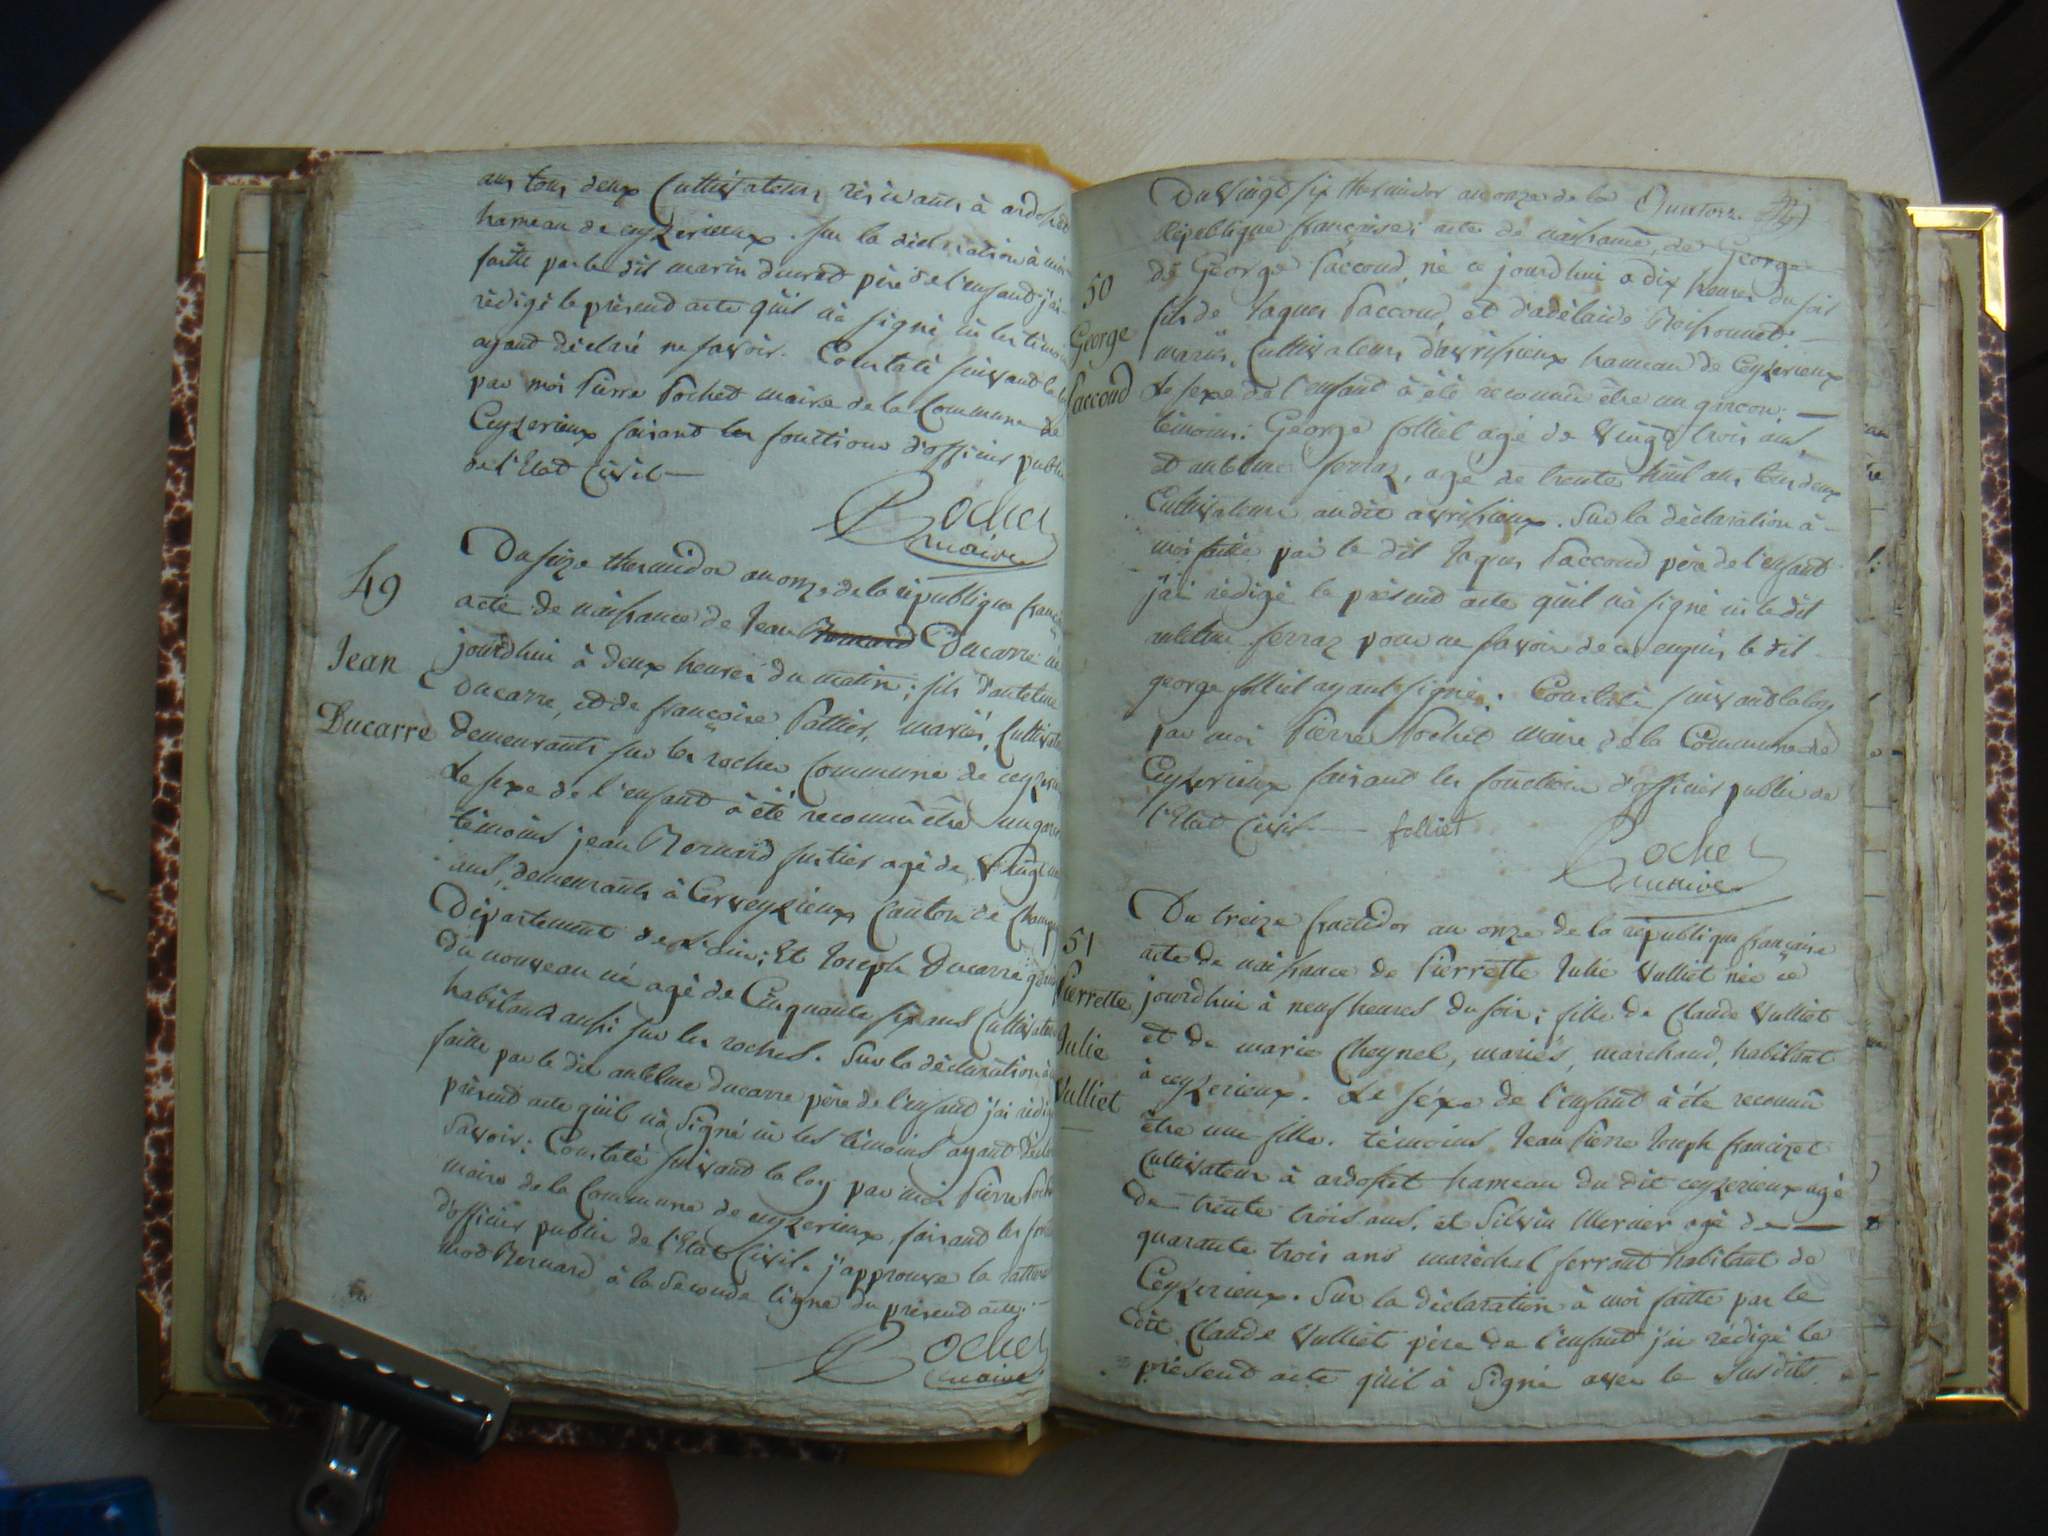 ans tous deux Cultivateurs résidants à ardosset
hameau de ceyzerieux. sur la déclaration à moi
faitte par le dit marin ducret père de l'enfant j'ai
rédigé le présend acte qu'il n'a signé ni les témoins
ayant déclaré ne savoir. Constaté suivand la loy
par moi Pierre Pochet maire de la Commune de
Ceyzerieux faisand les fonctions d'officier public
de l'Etat Civil
Pochet
maire
49
Jean
Ducarre
Du seize thermidor an onze de la république française
acte de naissance de Jean Bernard Ducarre né
jourdhui à deux heures du matin; fils d'antelme
Ducarre, et de françoise Pattier, mariés, Cultivate
demeurants sur les roches Commune de ceyzerieux
Le sexe de l'enfant à été reconnu être un garçon
témoins jean Bernard agé de vingt
ans, demeurants à Cerveyzieux Canton de Champ
Département de L'ain; Et Joseph Ducarre
du nouveau né agé de Cinquante six ans Cultivateur
habitant aussi sur les roches. Sur la déclaration à
faitte par le dit antelme ducarre père de l'enfant j'ai rédigé
présend acte qu'il n'a signé ni les témoins ayand déclaré
savoir: Constaté suivand la loy par moi Pierre Pochet
maire de la Commune de ceyzerieux faisand les fonct
d'officier public de l'Etat Civil. j'approuve la ratture
mod Bernard à la seconde ligne du présend acte.
Pochet
maire
50
George
Paccoud
Du vingt six thermidor an onze de la
République française; acte de naissance de George
de George Paccoud né ce jourdhui a dix heures du soir
fils de Jaques Paccoud, et d'adélaïde Moissonnet
mariés, Cultivateurs d'avrissieux hameau de Ceyzerieux
Le sexe de l'enfant à été reconnu être un garçon:
témoins: George folliet agé de vingt trois ans,
et antelme ferraz, agé de trente huit ans tous deux
Cultivateurs audit avrissieux. Sur la déclaration à
moi faitte par le dit Jaques Paccoud père de l'enfant
j'ai rédigé le présend acte qu'il n'a signé ni le dit
antelme ferraz pour ne savoir de ce enquis le dit
george folliet ayant signé. Constaté suivand la loy
par moi Pierre Pochet maire de la Commune de
Ceyzerieux faisand les fonctions d'officier public de
l'Etat Civil folliet
Pochet
maire
51
Pierrette
Julie
Vulliet
Du treize fructidor an onze de la république française
acte de naissance de Pierrette Julie Vulliet née ce
jourdhui à neuf heures du soir; fille de Claude Vulliet
et de marie Cheynel, mariés, marchand, habitant
à ceyzerieux. Le séxe de l'enfant à été reconnu
être une fille. témoins Jean Pierre Joseph francizet
Cultivateur à ardosset hameau du dit ceyzerieux agé
de trente trois ans, et Silvin Mernier agé de
quarante trois ans maréchal ferrant habitant de
Ceyzerieux. Sur la déclaration à moi faitte par le
dit Claude Vulliet père de l'enfant j'ai rédigé le
présend acte qu'il à signé avec le susdits